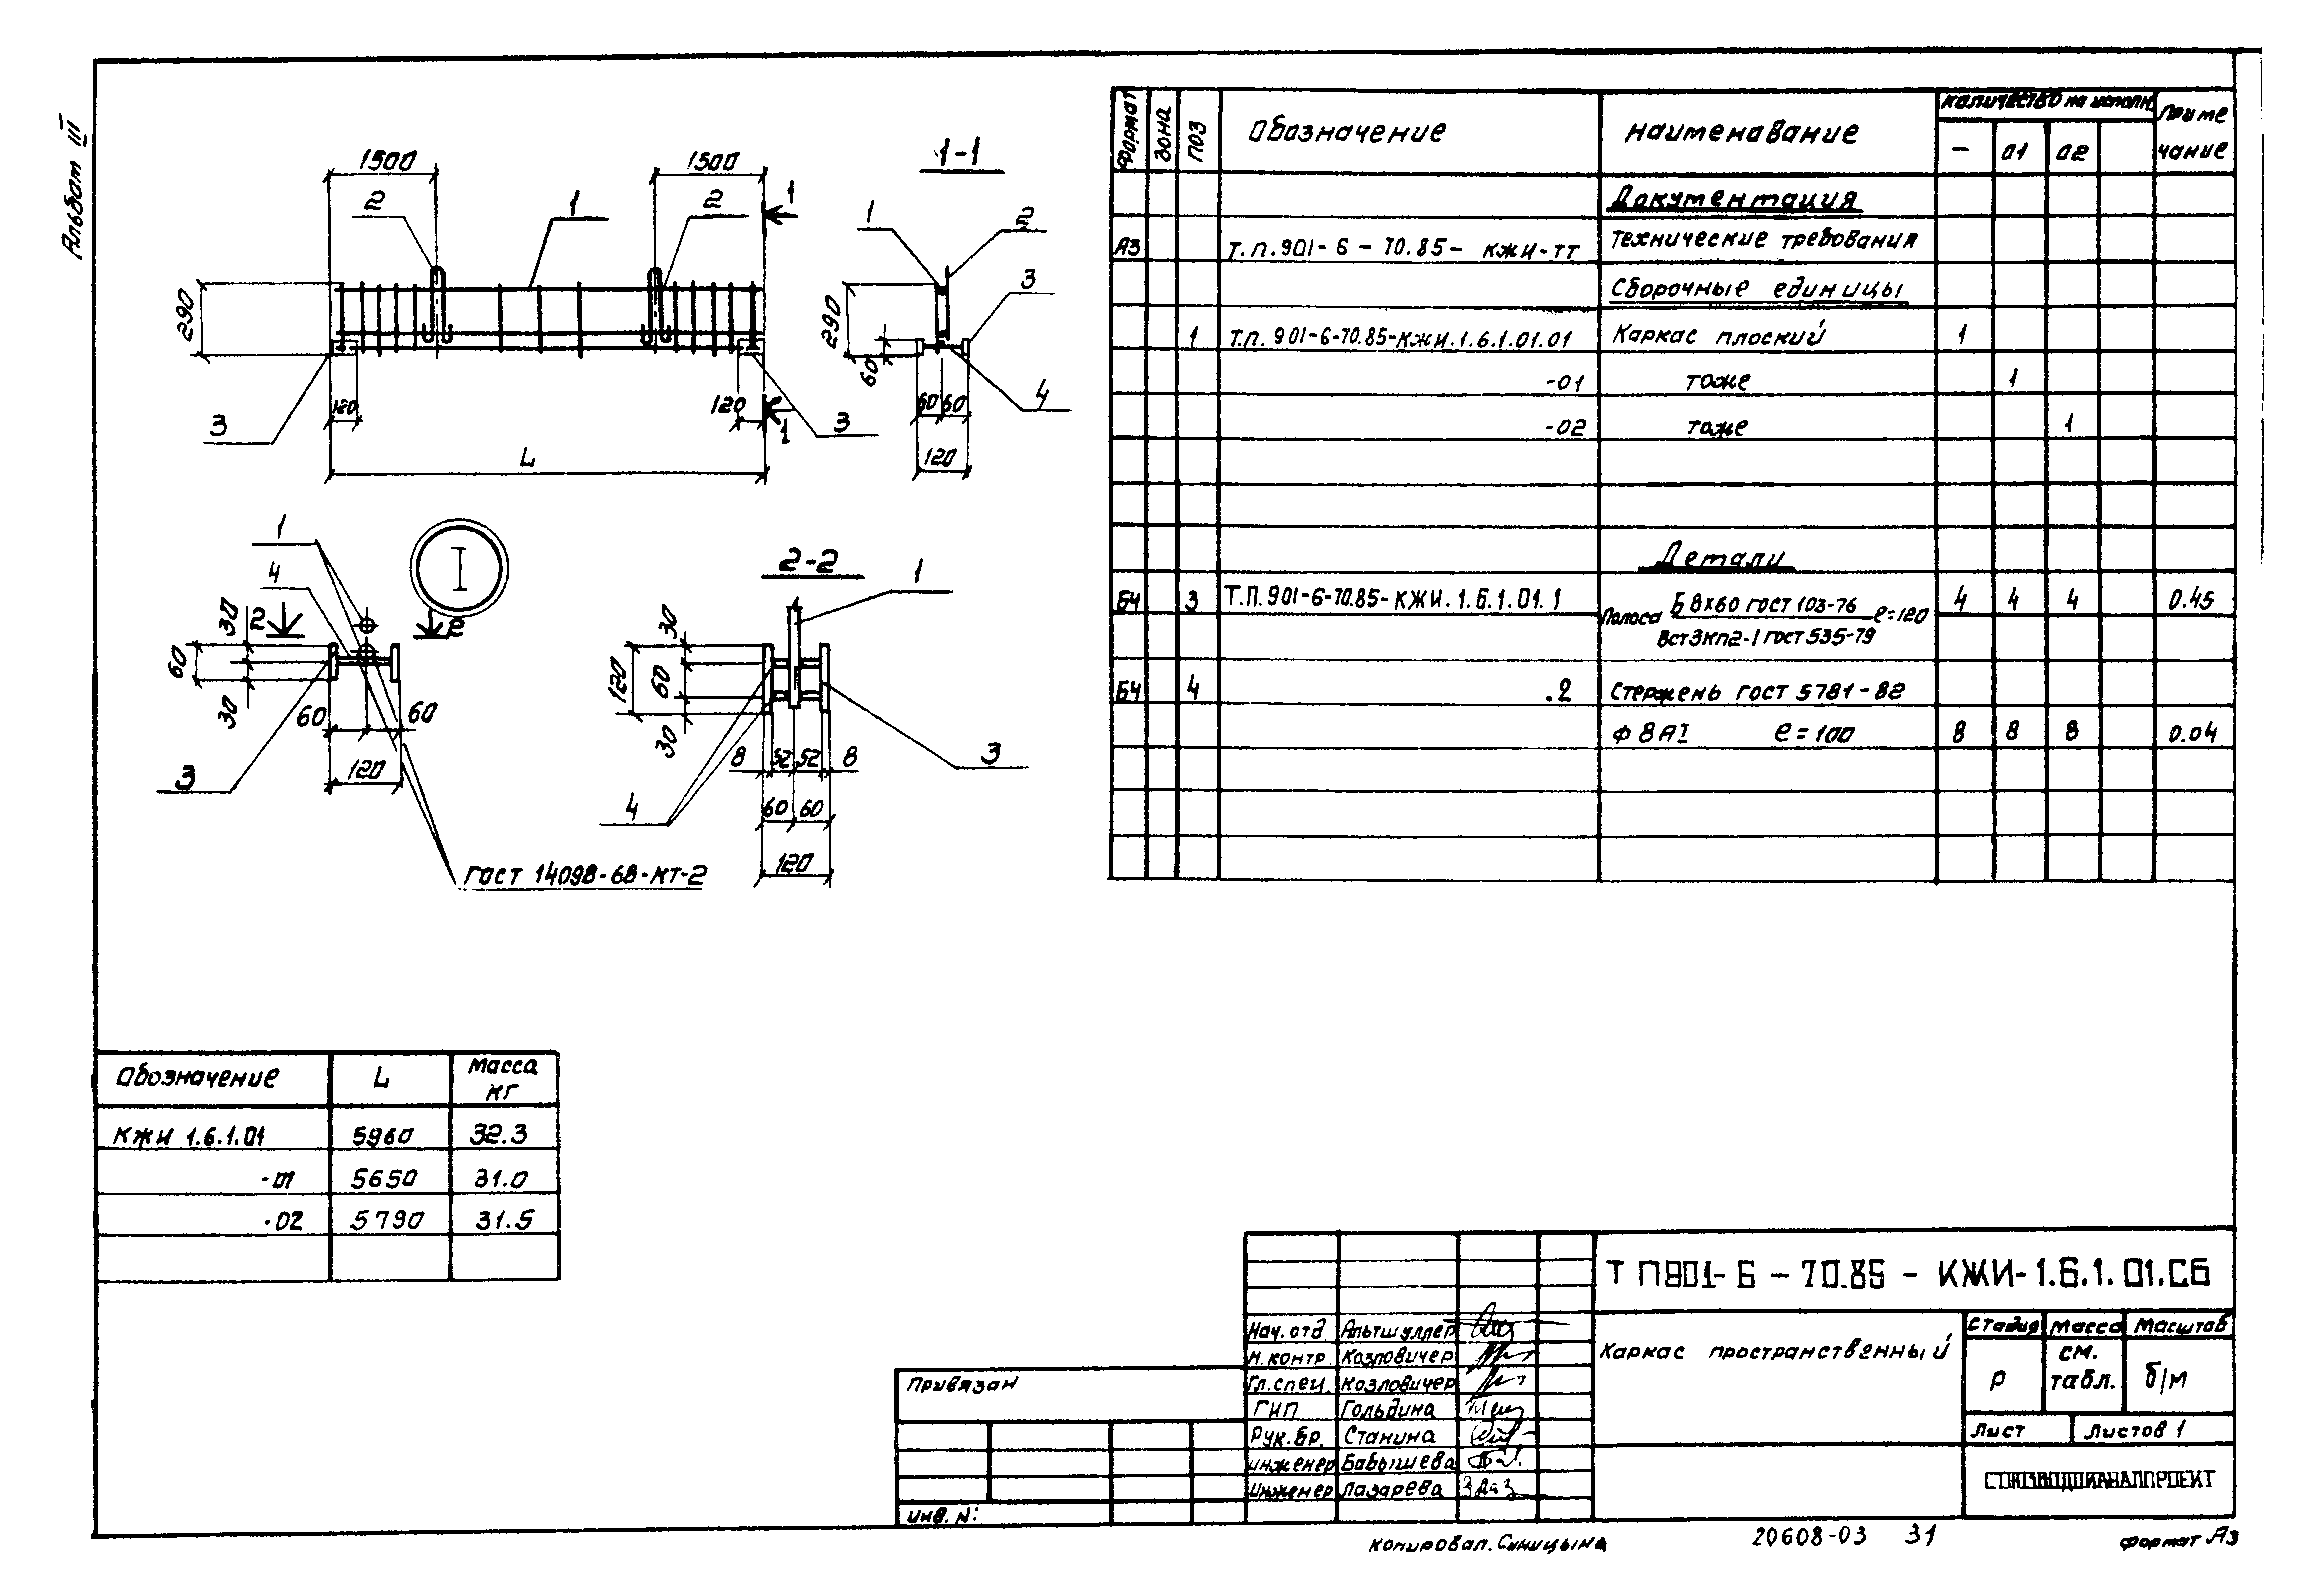 Альбом III
1500
1500
1-1
2
1
2
1
1
2
3
290
290
60
3
120
120
3
1
60 60
4
L
120
1
I
4
2-2
1
30
2
2
60
30
60
60
3
120
30
120
60
30
8 52 52 8
3
4
60 60
120
ГОСТ 14098-68-КТ-2
Формат
Зона
Поз
Обозначение
Наименавание
Каличество на исполн.
Приме
чание
-
01
02
Документация
А3
Т.п.901-6-70.85- КЖИ-ТТ
Технические требования
Сборочные единицы
1
Т.п. 901-6-70.85-КЖИ.1.6.1.01.01
Каркас плоский
1
-01
тоже
1
-02
тоже
1
Детали
БЧ
3
Т.П.901-6-70.85-КЖИ.1.6.1.01.1
Полоса Б 8х60 ГОСТ 103-76 ℓ=120
ВстЗкп2-1 ГОСТ 535-79
4 4 4
0.45
БЧ
4
.2
Стержень ГОСТ 5781-82
Ф 8АI ℓ=100
8 8 8
0.04
Обозначение
L
Масса
кг
КЖИ 1.6.1.01
5960
32.3
-01
5650
31.0
-02
5790
31.5
Т П901-6-70.85-КЖИ-1.6.1.01.СБ
Нач. отд.
Альтшуллер
Н. контр.
Козловичер
Гл. спец.
Козловичер
ГИП
Гольдина
Рук. бр.
Станина
инженер
Бабышева
Инженер
Лазарева
Каркас пространственный
Стадия
Масса
Масштаб
Р
см.
табл.
б/м
Лист
Листов 1
СОЮЗВОДОКАНАЛПРОЕКТ
Привязан
Инв. N:
копировал. Синицына
20608-03
31
формат А3